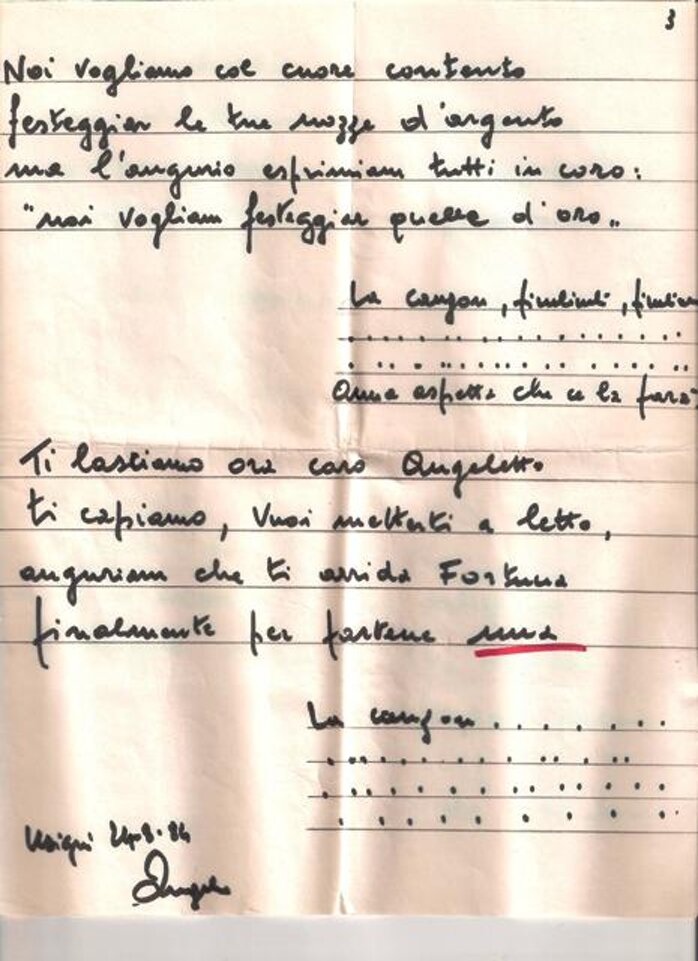 3
Noi vogliamo col cuore contento
festeggiar le tue nozze d'argento
ma l'augurio esprimiam tutti in coro:
"noi vogliam festeggiar quelle d'oro"
La canzon, fimlimli,
. . . . . . . . . . . . . . . . . .
. . . . . . . . . . . . . . . . . .
Anna aspetta che ce la farà
Ti lasciamo ora caro Angeletto
ti capiamo, vuoi metterti a letto,
auguriam che ti arrida Fortuna
finalmente per fartene una
La canzon . . . . . . . .
. . . . . . . . . . . . . .
. . . . . . . . . . . . . .
. . . . . . . . .
24-8-84
Angelo